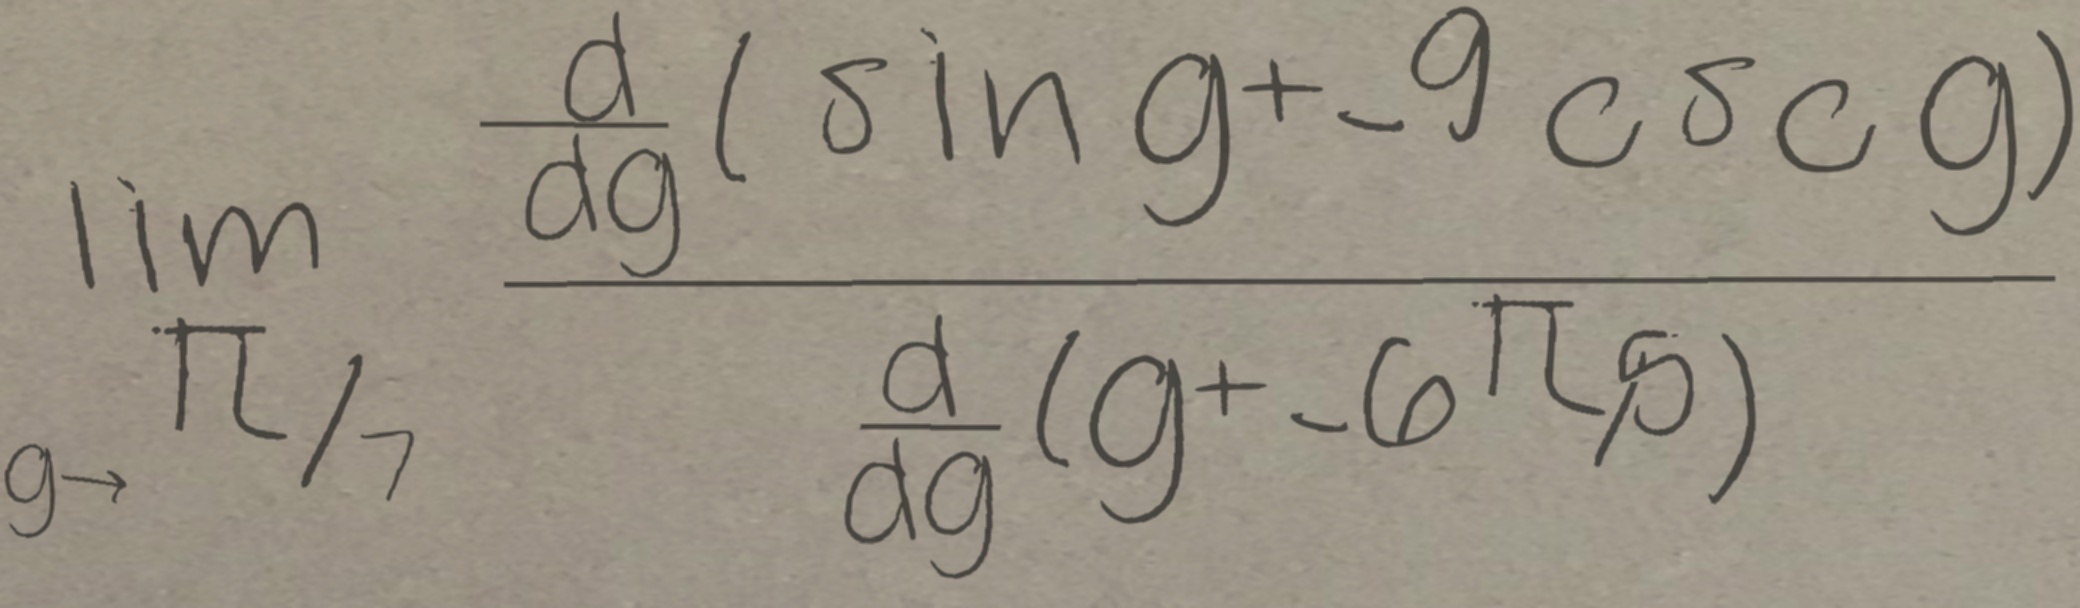 \lim_{g \to \pi/7} \frac{\frac{d}{dg}(\sin g + -9 \csc g)}{\frac{d}{dg}(g + -6\pi/5)}